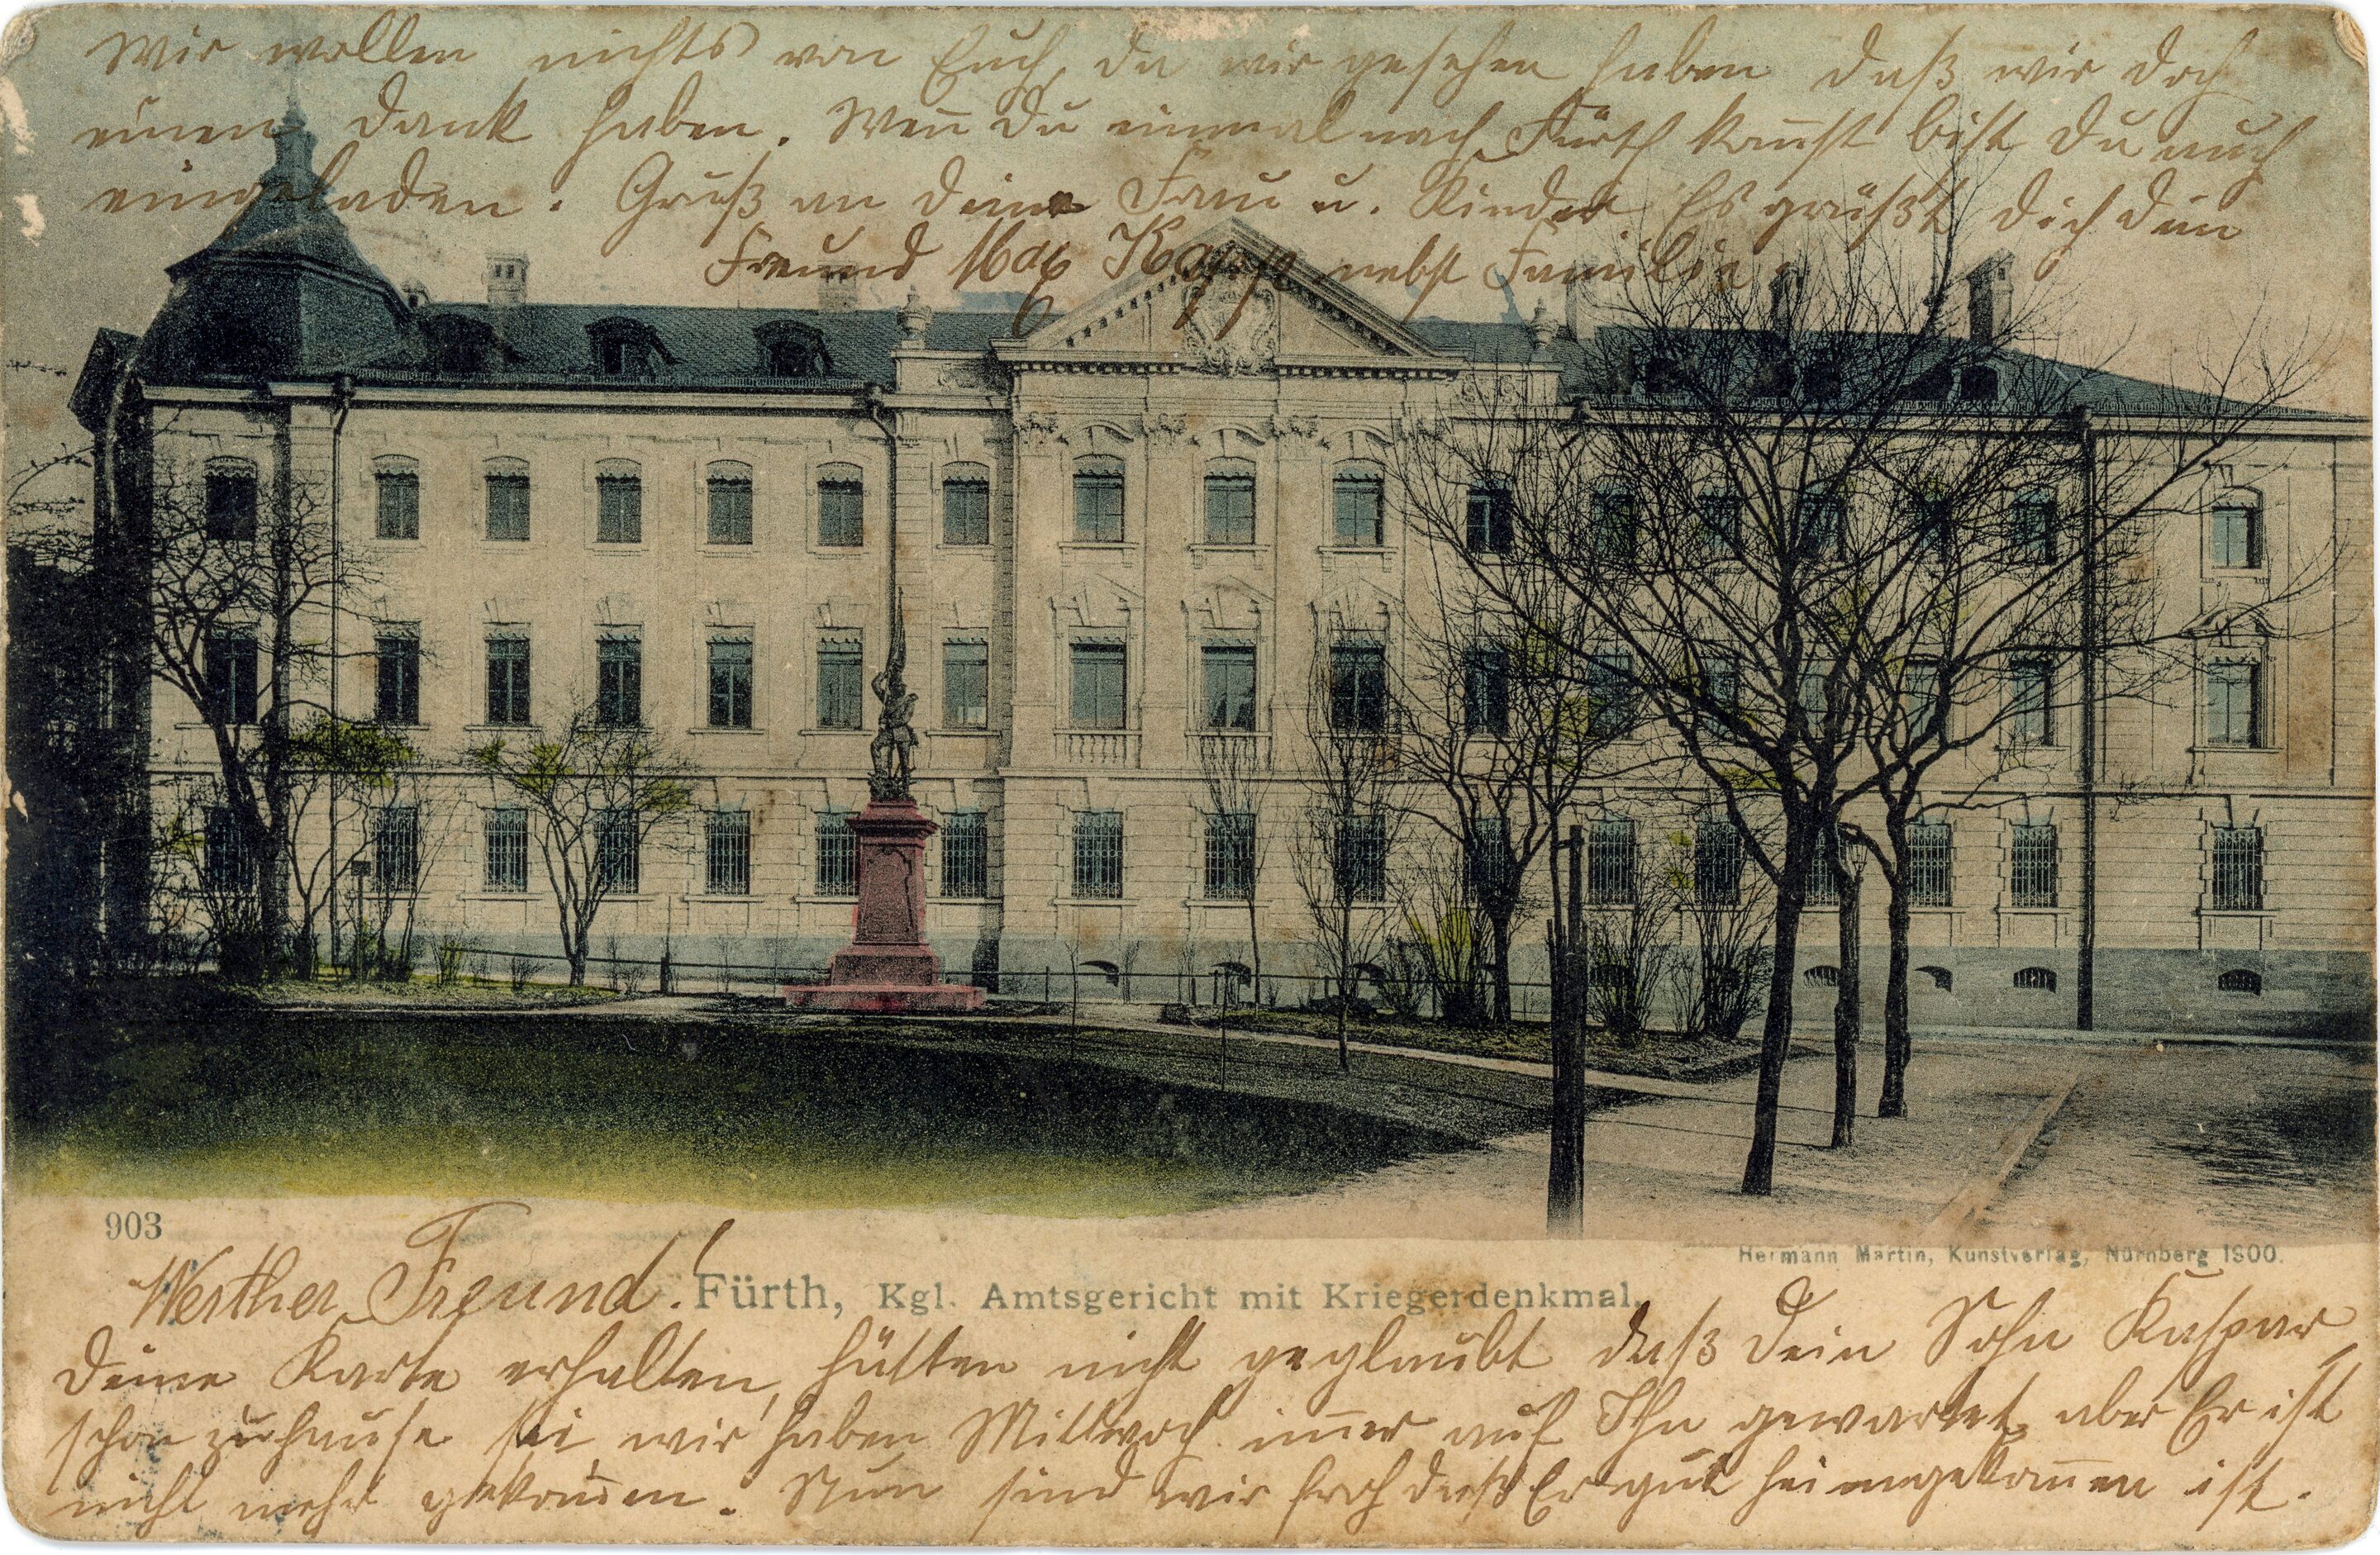 Wir wollen nichts von Euch, da wir gesehen haben daß wir doch
einen Dank haben. Weñ Du einmal nach Fürth kom̄st bist Du auch
eingeladen. Gruß an deine Frau u. Kinder Es grüßt dich dein
Freund Max Kapp nebst Familie.
903
Hermann Martin, Kunstverlag, Nürnberg 1900.
Werther Freund!
Fürth, Kgl. Amtsgericht mit Kriegerdenkmal.
Deine Karte erhalten, hätten nicht geglaubt daß Dein Sohn Kaspar
schon zuhause sei wir haben Mittwoch im̄er auf Ihn gewartet, aber Er ist
nicht mehr gekom̄en. Nun sind wir froh daß Er gut heimgekom̄en ist.